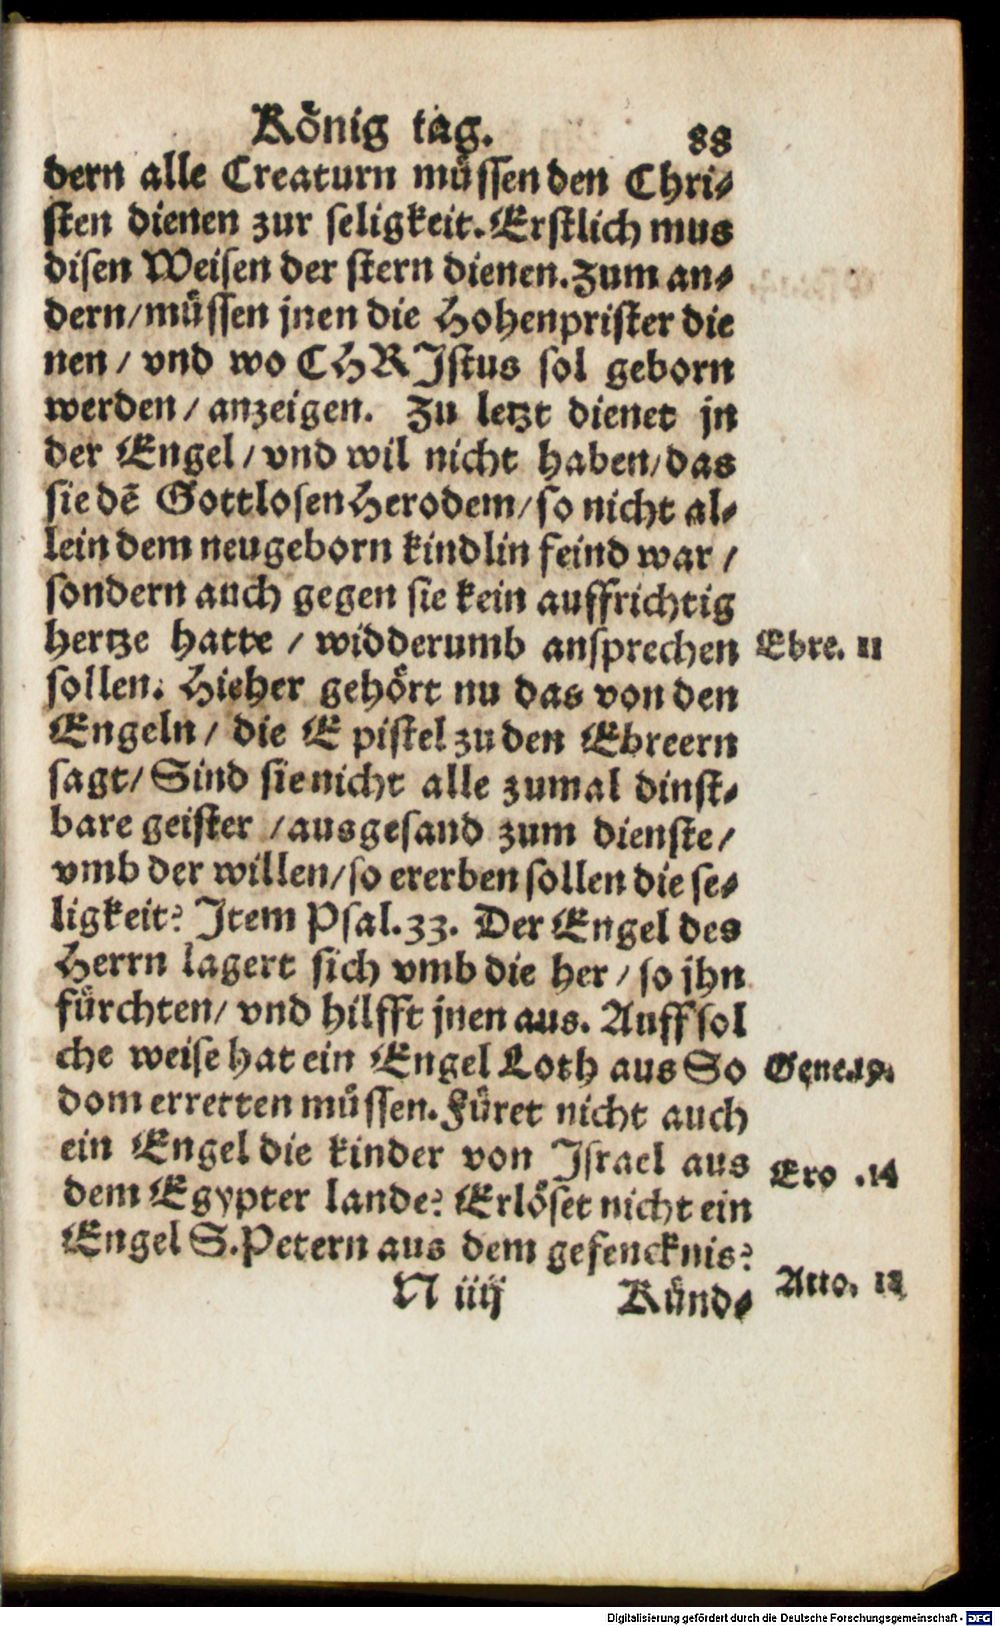 König tag. 88
dern alle Creaturn müssen den Chri⸗
sten dienen zur seligkeit. Erstlich mus
disen Weisen der stern dienen. Zum an⸗
dern/ müssen jnen die Hohenprister die
nen / vnd wo CHRJstus sol geborn
werden / anzeigen. Zu letzt dienet jn
der Engel / vnd wil nicht haben/ das
sie dē Gottlosen Herodem/ so nicht al⸗
lein dem neugeborn kindlin feind war /
sondern auch gegen sie kein auffrichtig
hertze hatte / widderumb ansprechen
Ebre. 11
sollen. Hieher gehört nu das von den
Engeln/ die Epistel zu den Ebreern
sagt/ Sind sie nicht alle zumal dinst⸗
bare geister / ausgesand zum dienste/
vmb der willen/ so ererben sollen die se⸗
ligkeit? Jtem Psal. 33. Der Engel des
Herrn lagert sich vmb die her / so jhn
fürchten/ vnd hilfft jnen aus. Auff sol
che weise hat ein Engel Loth aus So
Gene. 19.
dom erretten müssen. Füret nicht auch
ein Engel die kinder von Jsrael aus
Exo .14
dem Egypter lande? Erlöset nicht ein
Engel S. Petern aus dem gefencknis?
Acto. 12
N iiij Künd⸗
Digitalisierung gefördert durch die Deutsche Forschungsgemeinschaft - DFG